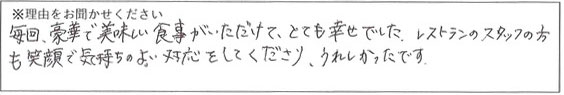 ※理由をお聞かせください
毎回、豪華で美味しい食事がいただけて、とても幸せでした。レストランのスタッフの方
も笑顔で気持ちのよい対応をしてくださり、うれしかったです。